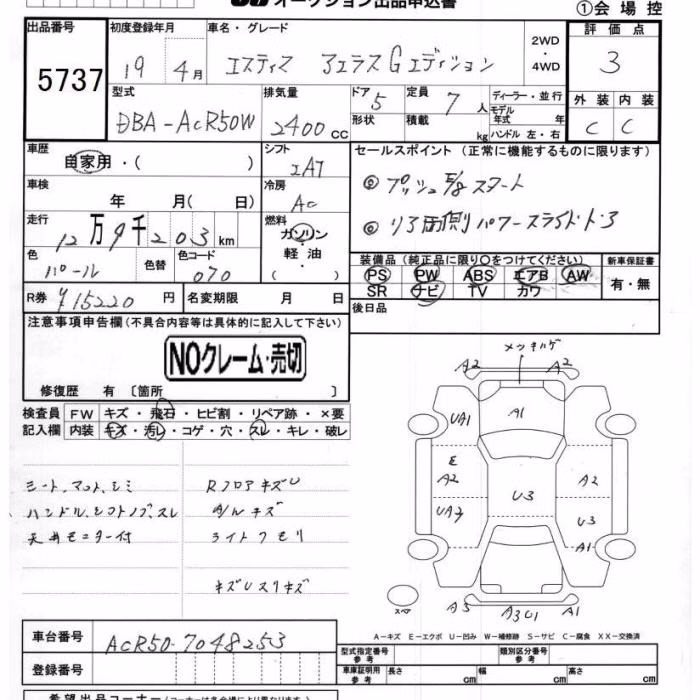 オークション出品申込書
①会場控
出品番号 初度登録年月 車名・グレード 評価点
5737 19 4月 エスティマ アエラスGエディション 2WD・4WD 3
型式 排気量 ドア 5 定員 7人 ディーラー・並行 外装 内装
DBA-ACR50W 2400cc 形状 積載 kg モデル年式 年 ハンドル 左・右 C C
車歴 シフト セールスポイント(正常に機能するものに限ります)
自家用・( ) IAT ◎プッシュE/gスタート
車検 冷房
年 月( 日) AC ◎リヤ両側パワースライドドア
走行 燃料
12万9千203km ガソリン・軽油・( )
色 色替 色コード 装備品(純正品に限り○をつけてください) 新車保証書
パール 070 PS PW ABS エアB AW 有・無
R券 ¥15220円 名変期限 月 日 SR ナビ TV カワ
注意事項申告欄(不具合内容等は具体的に記入して下さい) 後日品
NOクレーム・売切
修復歴 有〔箇所 〕
検査員記入欄 FW キズ・飛石・ヒビ割・リペア跡・×要
内装 キズ・汚レ・コゲ・穴・スレ・キレ・破レ
シート、マット、シミ RフロアキズU
ハンドル、シフトノブ、スレ A/Lキズ
天井モニター付 ライトクモリ
キズUスリキズ
メッキハゲ
A2 A2
UA1 A1
E
A2 A2
U3
UA2 U3
A1
スペア A3 A1
A-キズ E-エクボ U-凹み W-補修跡 S-サビ C-腐食 XX-交換済
車台番号 ACR50-7048253
型式指定番号 参考 類別区分番号 参考
登録番号 車庫証明用 参考 長さ cm 幅 cm 高さ cm
希望出品コーナー